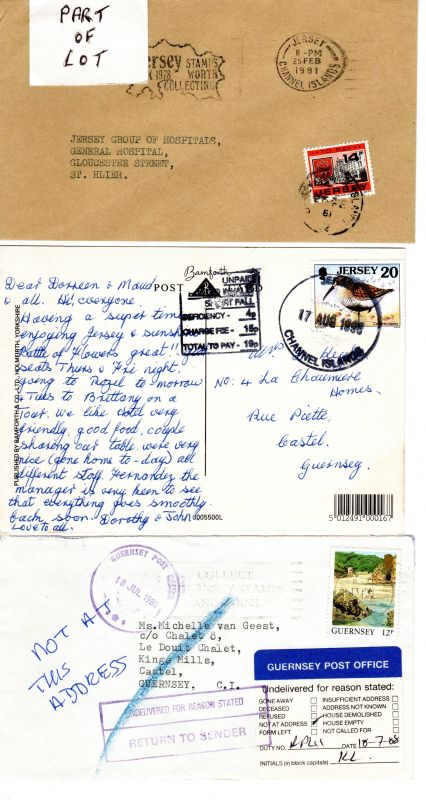 PART
OF
LOT
Jersey STAMPS
1978 WORTH
COLLECTING
JERSEY
8-PM
25 FEB
1981
CHANNEL ISLANDS
JERSEY GROUP OF HOSPITALS,
GENERAL HOSPITAL,
GLOUCESTER STREET,
ST. HLIER.
14
JERSEY
Bamforth
POST
Dear Dorreen & Maud
& all. Hi, everyone.
Having a super time
enjoying Jersey & sunshine
Battle of Flowers great!!
seats Thurs & Fri night.
going to Rozel to-morrow
& Tues to Brittany on a
tour. We like hotel very
friendly, good food, couple
sharing our table were very
nice (gone home to-day) all
different staff. Fernandez the
manager is very keen to see
that everything goes smoothly
back soon. Dorothy & John
Love to all.
PUBLISHED BY BAMFORTH & CO. LTD., HOLMFIRTH, YORKSHIRE
UNPAID
DEFICIENCY - 4p
CHARGE FEE - 15p
TOTAL TO PAY - 19p
JERSEY 20
JERSEY
17 AUG 1998
CHANNEL ISLANDS
No: 4 La Chaumiere
Homes.
Rue Piette,
Castel.
Guernsey.
0005500L
5 012491 000167
GUERNSEY POST OFFICE
18 JUL 1988
COLLECT
GUERNSEY STAMPS
AND COINS
NOT AT
THIS
ADDRESS
Ms. Michelle van Geest,
c/o Chalet 8,
Le Douit Chalet,
Kings Mills,
Castel,
GUERNSEY, C.I.
GUERNSEY 12P
UNDELIVERED FOR REASON STATED
RETURN TO SENDER
GUERNSEY POST OFFICE
Undelivered for reason stated:
GONE AWAY INSUFFICIENT ADDRESS
DECEASED ADDRESS NOT KNOWN
REFUSED HOUSE DEMOLISHED
NOT AT ADDRESS HOUSE EMPTY
FORM LEFT NOT CALLED FOR
DUTY NO. DATE 18-7-88
INITIALS (in block capitals)